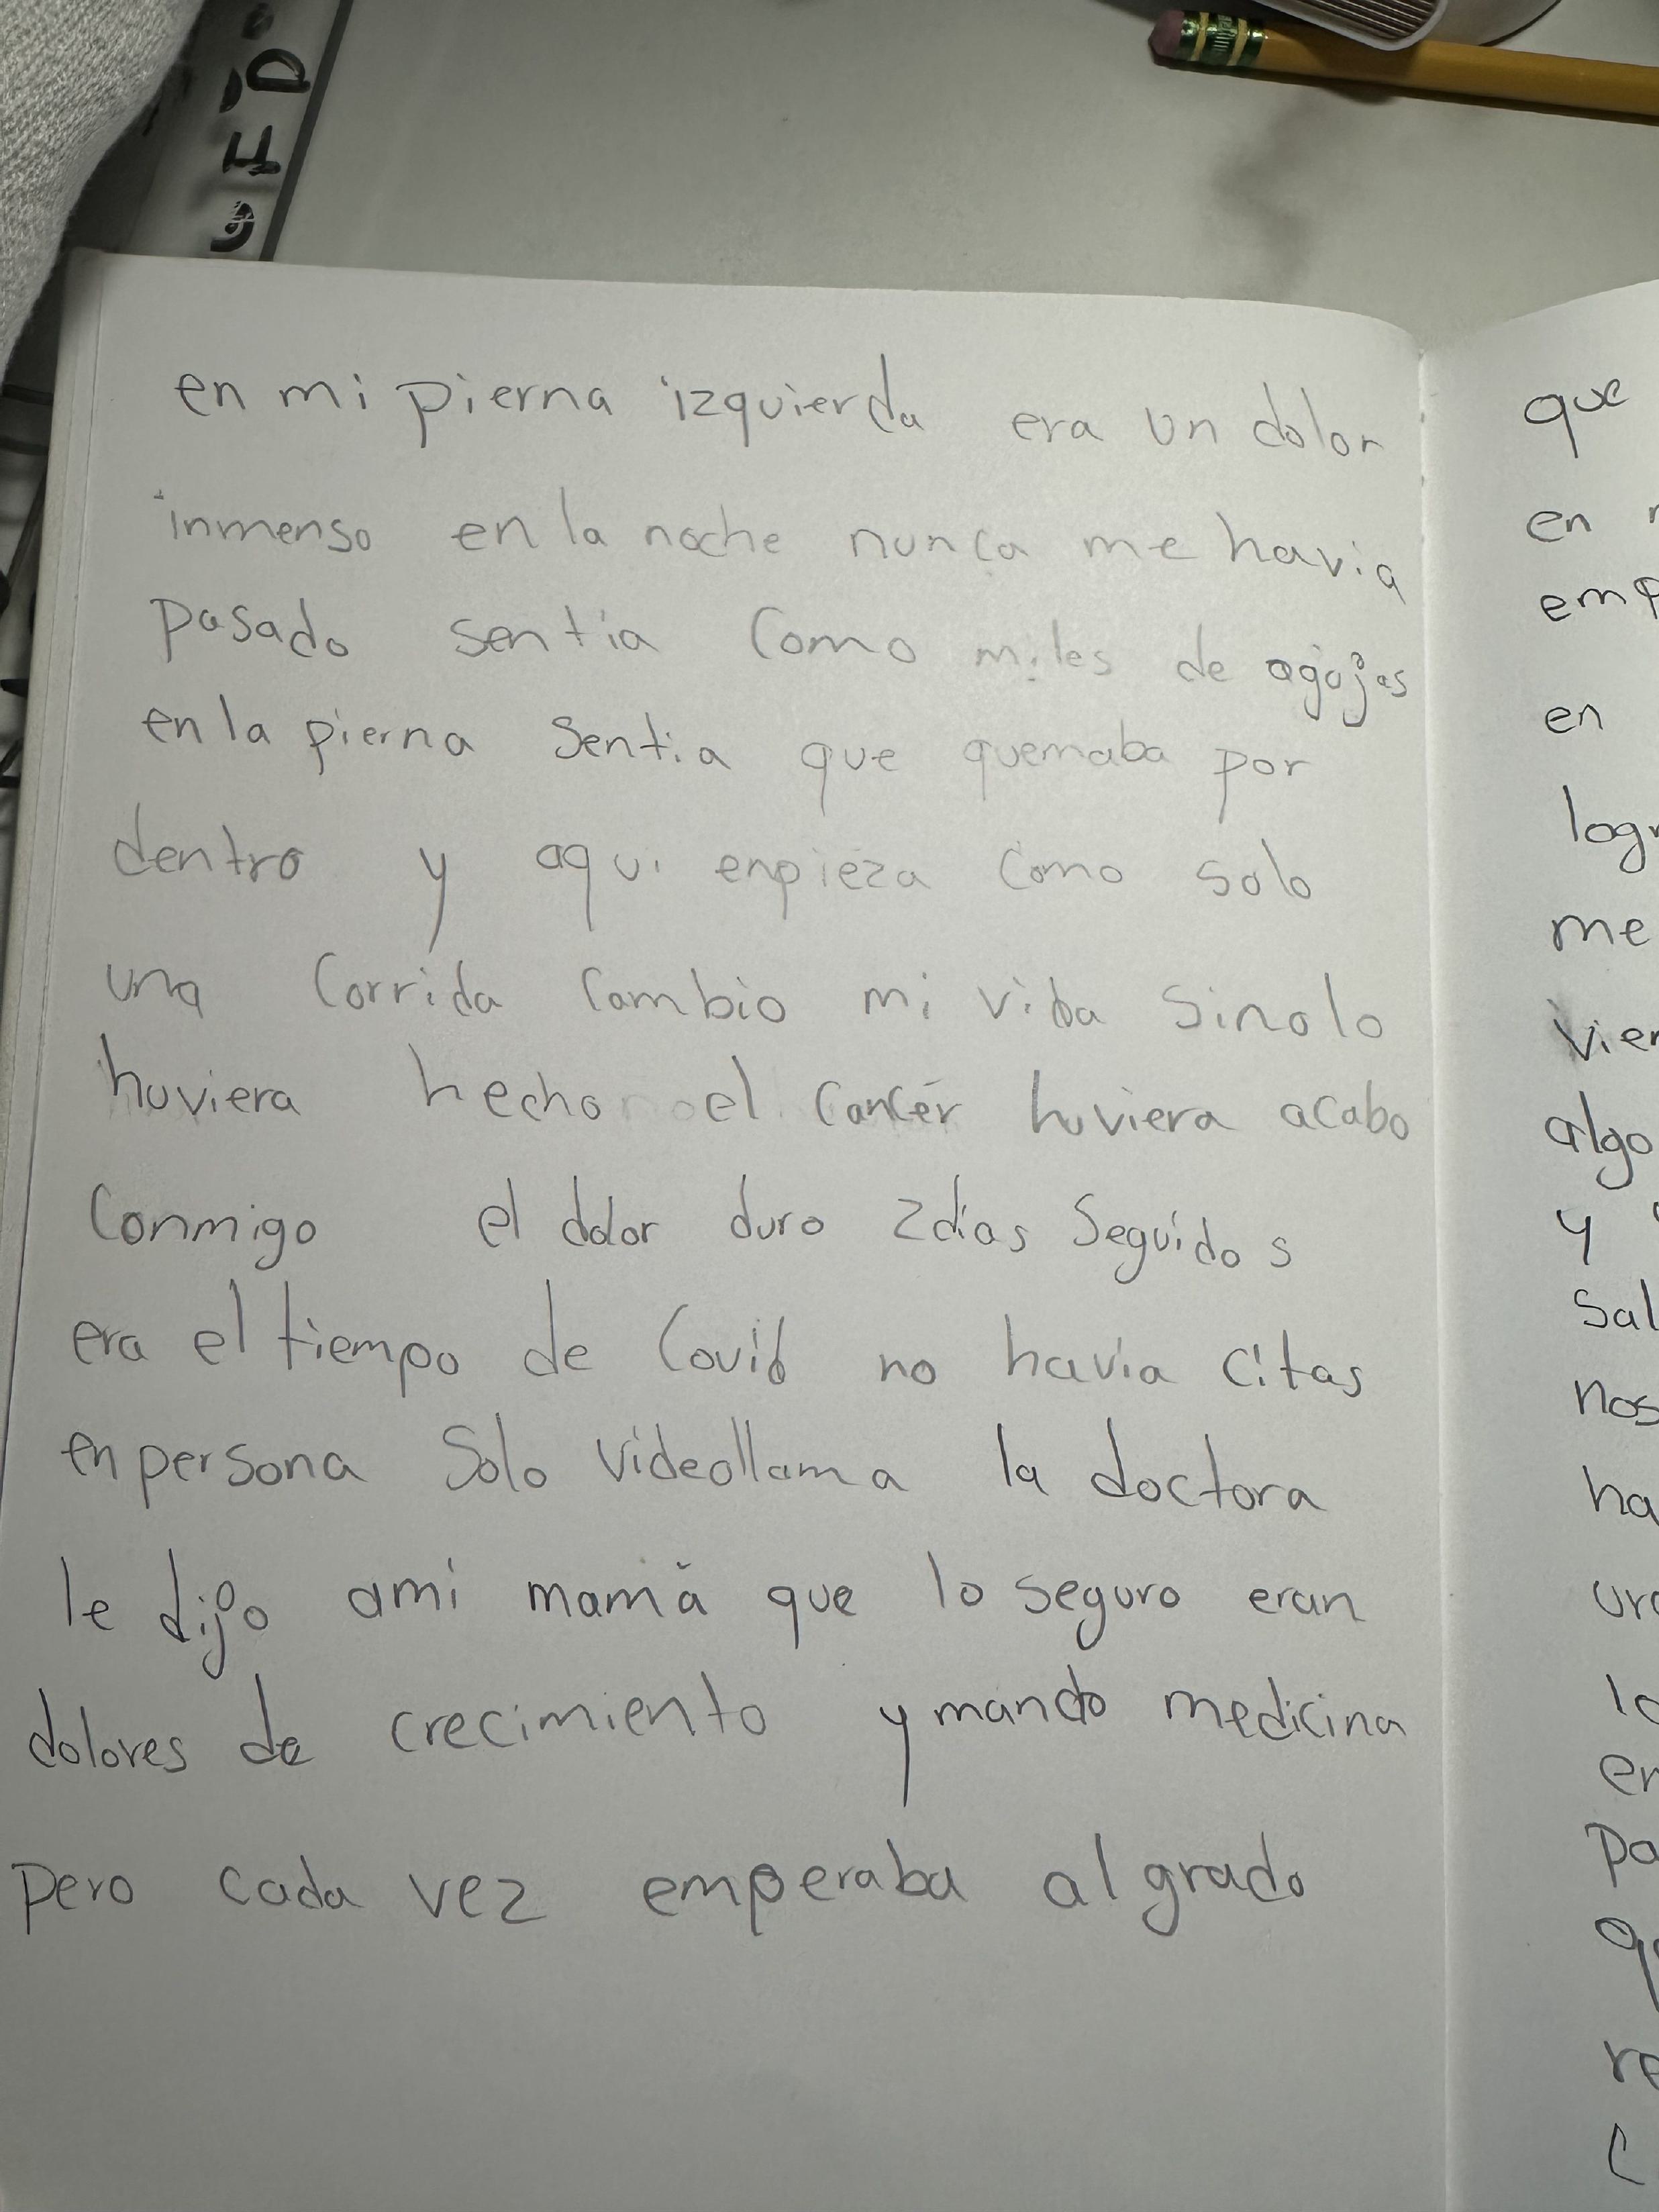 en mi pierna izquierda era un dolor
inmenso en la noche nunca me havia
pasado sentia como miles de agujas
en la pierna sentia que quemaba por
dentro y aqui enpieza como solo
una corrida cambio mi vida sinolo
huviera hecho el cancér huviera acabo
conmigo el dolor duro 2 dias seguidos
era el tiempo de Covid no havia citas
en persona solo videollama la doctora
le dijo ami mamá que lo seguro eran
dolores de crecimiento y mando medicina
pero cada vez emperaba al grado
que
en
en
me
algo
y